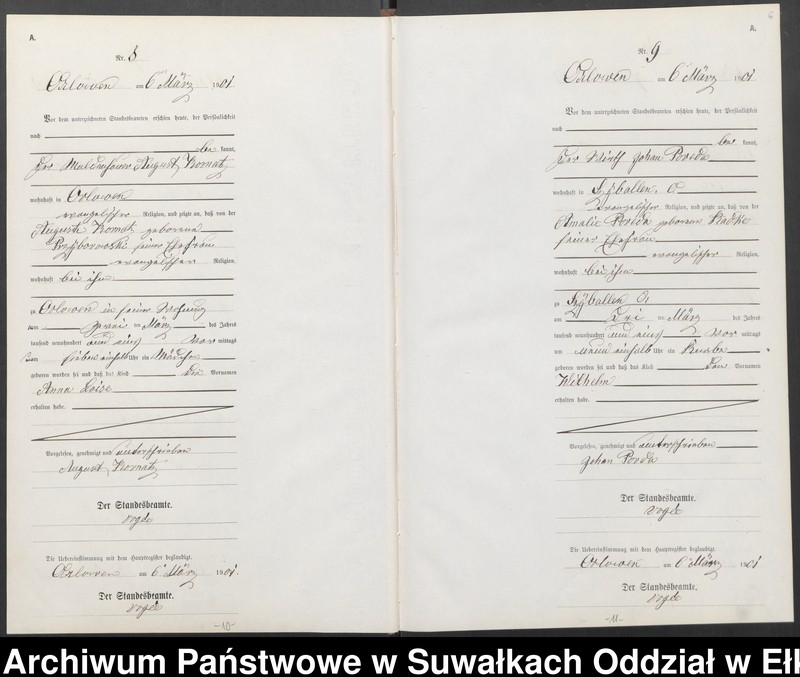 A.
Nr. 8
Orlowen am 6 März 1901
Vor dem unterzeichneten Standesbeamten erschien heute, der Persönlichkeit
nach
be kannt,
Der August Komatz
wohnhaft in Orlowen
evangelischer Religion, und zeigte an, daß von der
Auguste Komatz geborene
Przyborowski seiner Ehefrau
evangelischer Religion,
wohnhaft bei ihm
zu Orlowen in seiner Wohnung
am zwei ten März des Jahres
tausend neunhundert und eins vor mittags
um sieben einhalb Uhr ein Mädchen
geboren worden sei und daß das Kind die Vornamen
Anna Loise
erhalten habe.
Vorgelesen, genehmigt und unterschrieben
August Komatz
Der Standesbeamte.
Vogde
Die Uebereinstimmung mit dem Hauptregister beglaubigt.
Orlowen am 6 März 1901.
Der Standesbeamte.
Vogde
-10-
6
A.
Nr. 9
Orlowen am 6 März 1901
Vor dem unterzeichneten Standesbeamten erschien heute, der Persönlichkeit
nach
be kannt,
Der Wirth Johan Poreda
wohnhaft in Czyballen, O
evangelischer Religion, und zeigte an, daß von der
Amalie Poreda geborene Radtke
seiner Ehefrau
evangelischer Religion,
wohnhaft bei ihm
zu Czyballen O,
am Drei ten März des Jahres
tausend neunhundert und eins vor mittags
um neun einhalb Uhr ein Knabe
geboren worden sei und daß das Kind den Vornamen
Wilhelm
erhalten habe.
Vorgelesen, genehmigt und unterschrieben
Johan Poreda
Der Standesbeamte.
Vogde
Die Uebereinstimmung mit dem Hauptregister beglaubigt.
Orlowen am 6 März 1901
Der Standesbeamte.
Vogde
-11-
Archiwum Państwowe w Suwałkach Oddział w Ełk